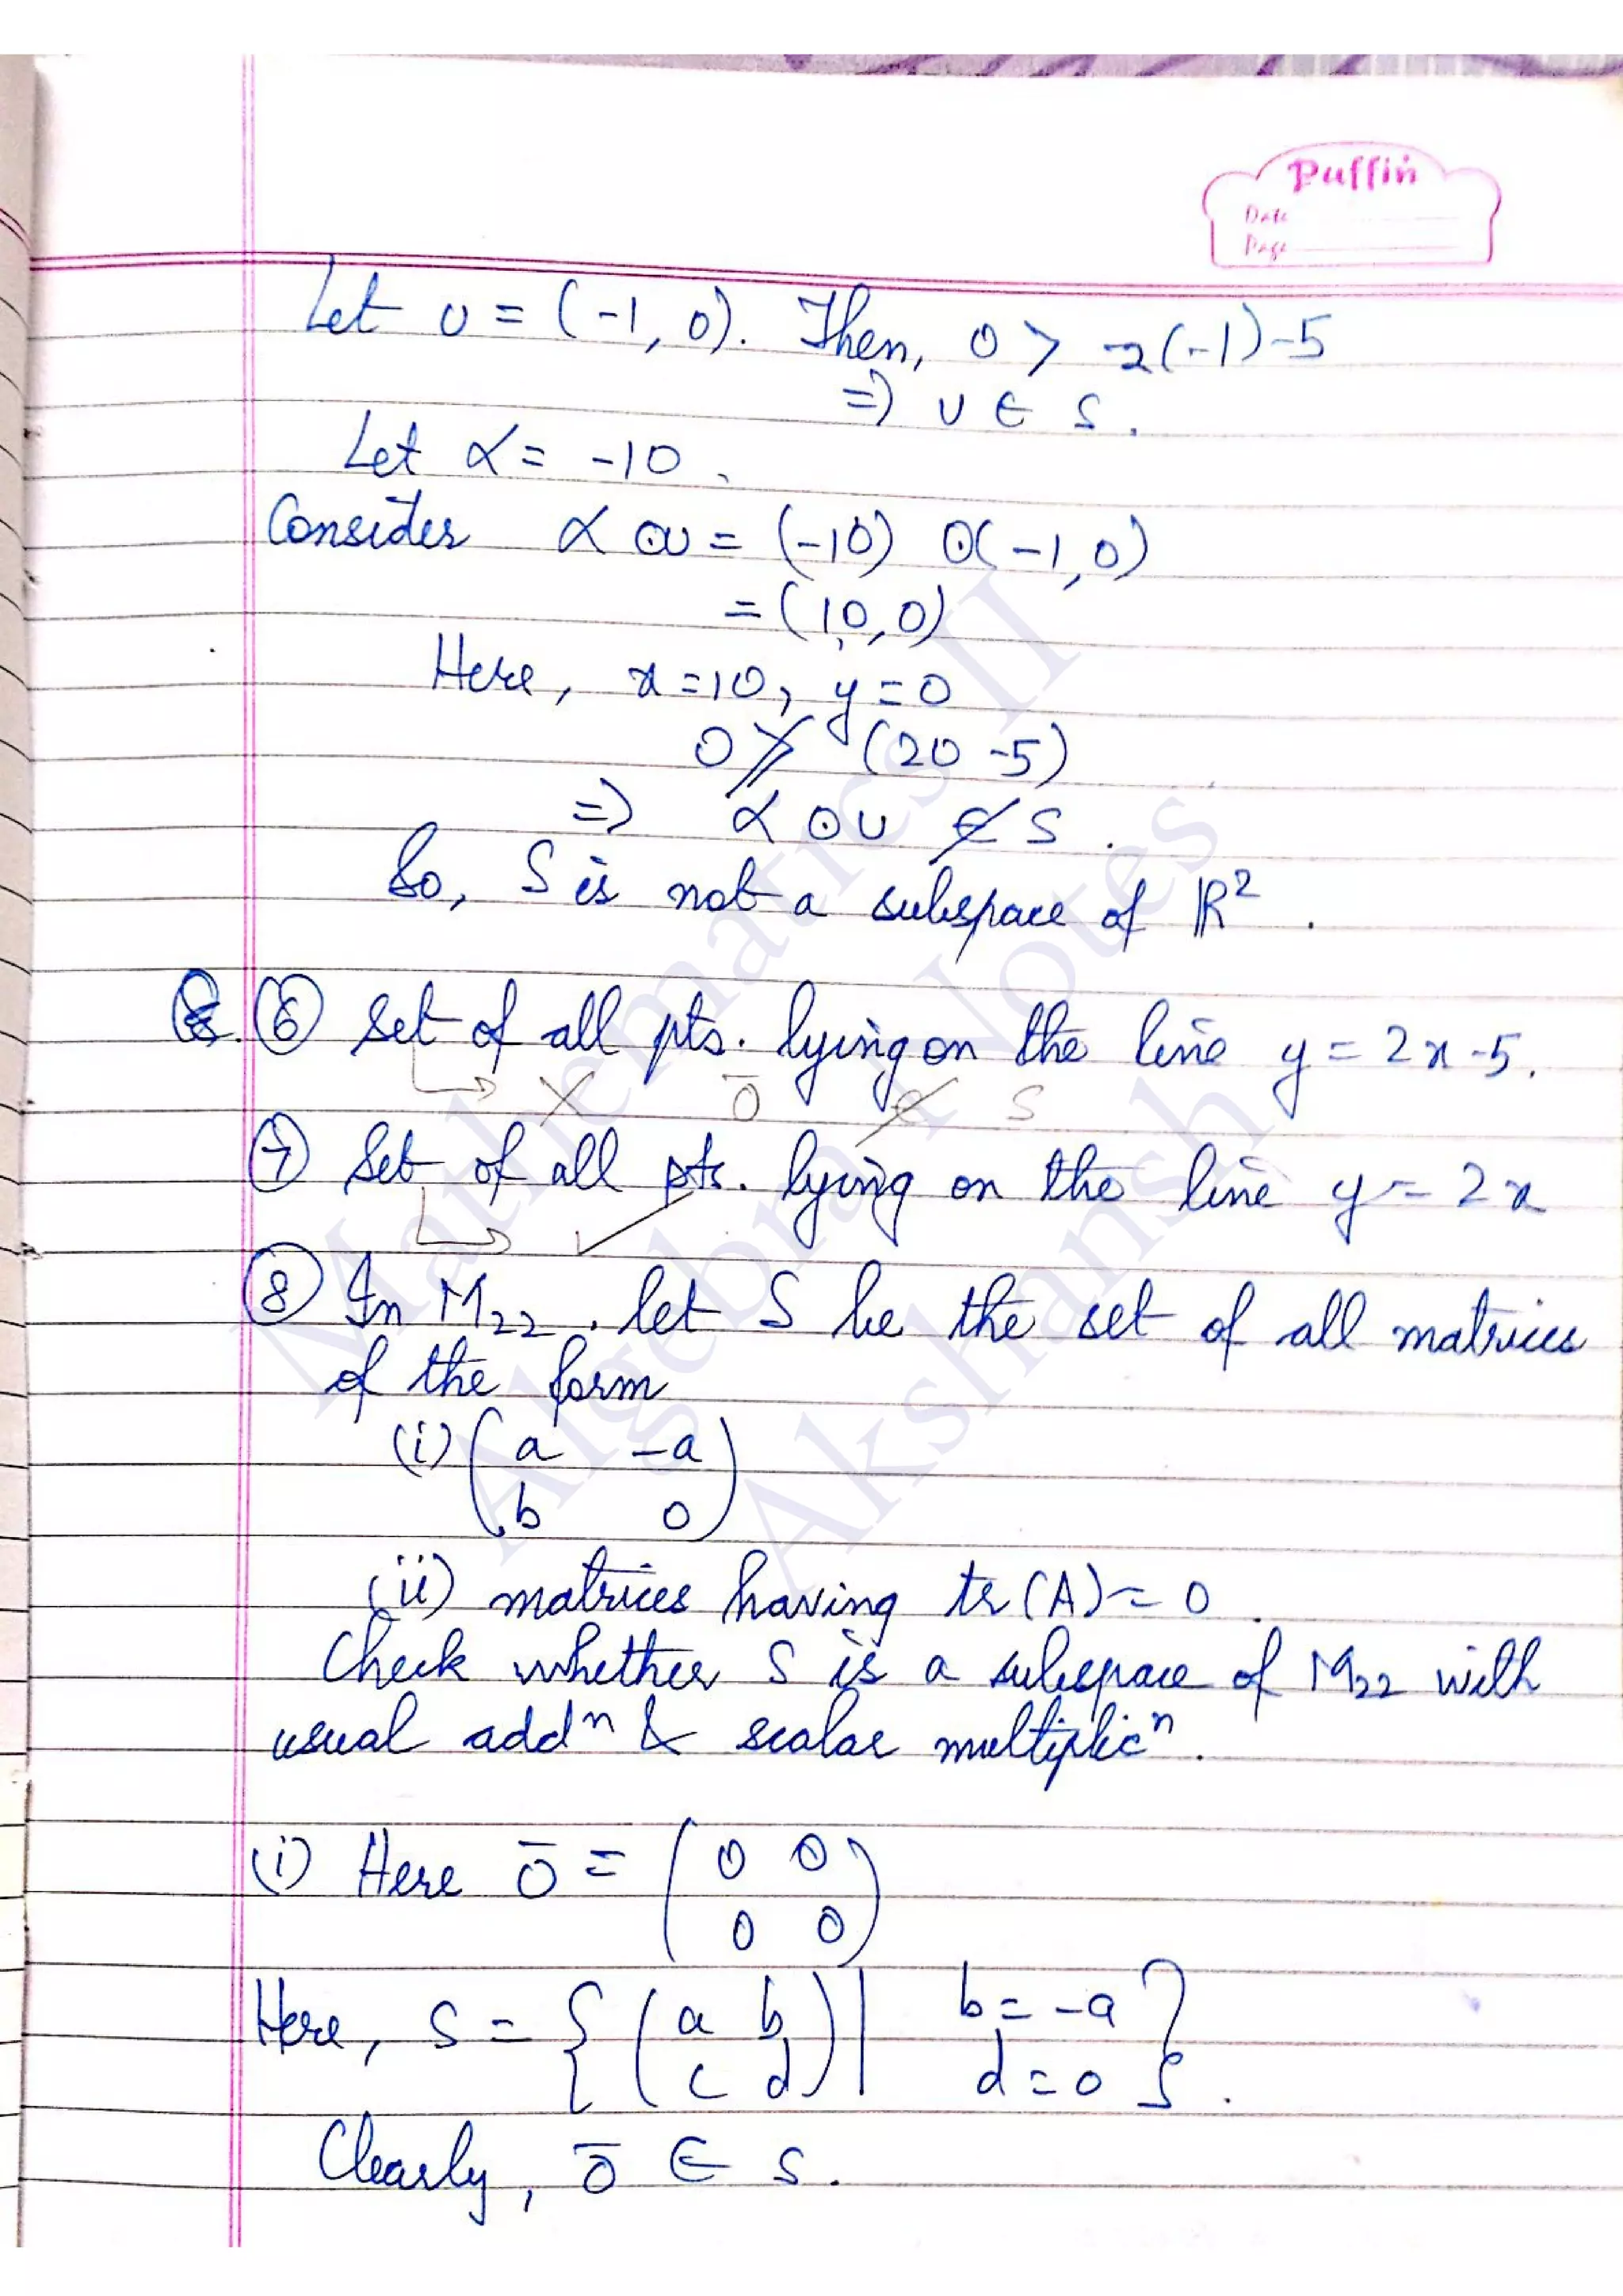 Puffin
Date
Page
Let v = (-1, 0). Then, 0 > 2(-1)-5
⇒ v ∈ S.
Let α = -10.
Consider α ⊙ v = (-10) ⊙ (-1, 0)
= (10, 0)
Here, x = 10, y = 0
0 ≯ (20 - 5)
⇒ α ⊙ v ∉ S.
So, S is not a subspace of ℝ².
Q. ⑥ Set of all pts. lying on the line y = 2x - 5.
↳ X ō ∉ S
⑦ Set of all pts. lying on the line y = 2x
↳ ✓
⑧ In M₂₂, let S be the set of all matrices
of the form
(i) ( a -a
b 0 )
(ii) matrices having tr(A) = 0.
Check whether S is a subspace of M₂₂ with
usual addⁿ & scalar multiplicⁿ.
(i) Here ō = ( 0 0
0 0 )
Here, S = { ( a b | b = -a
c d ) | d = 0 }.
Clearly, ō ∈ S.
Mathematics II
Algebra I Notes
Akshansh